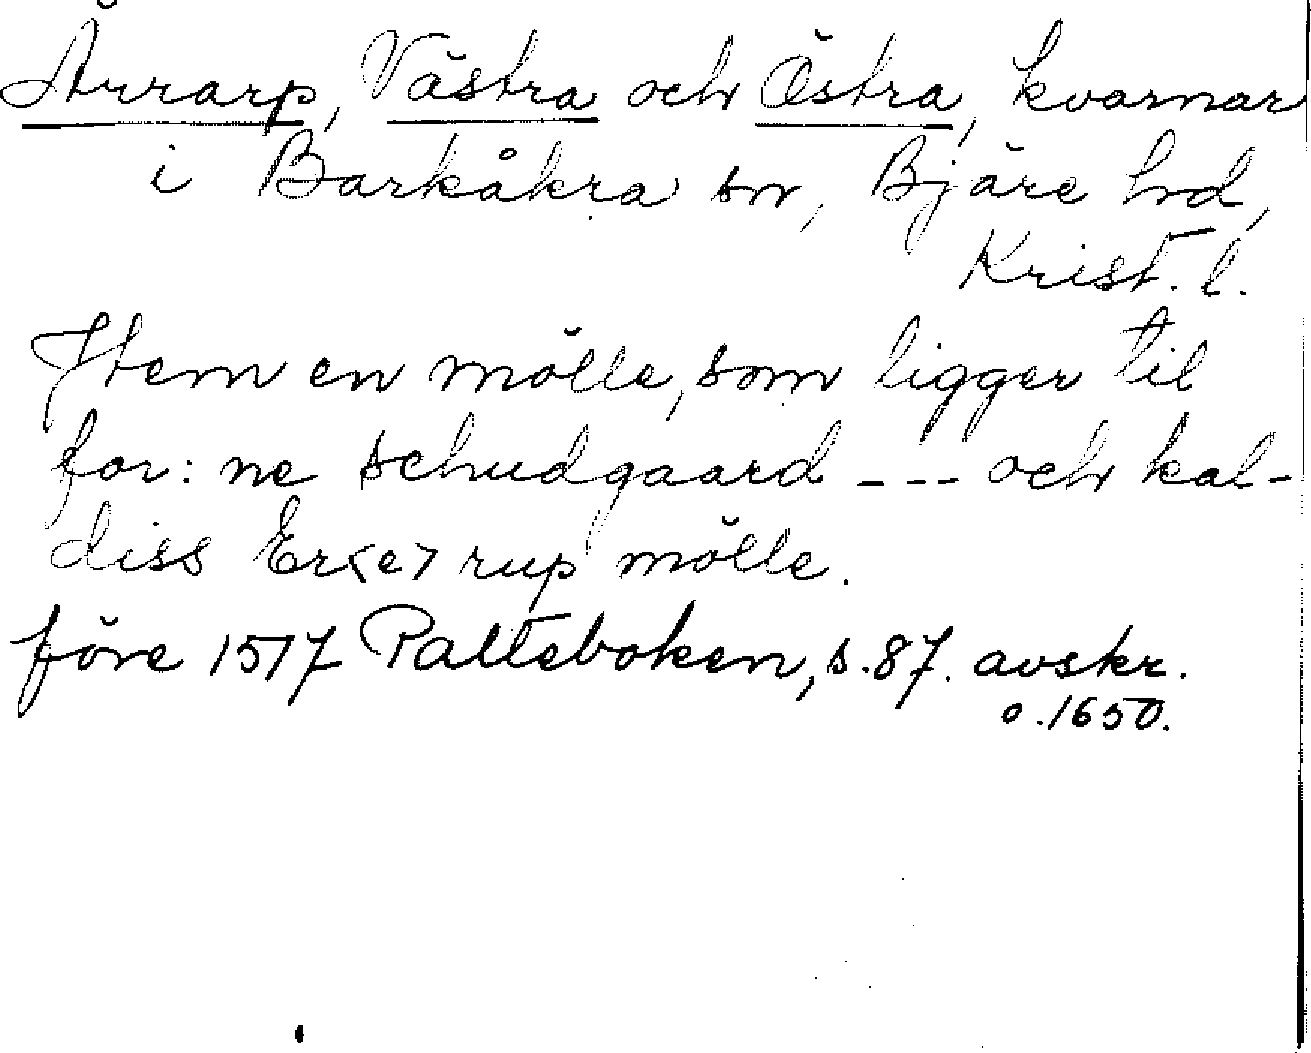 Ärrarp, Västra och Östra, kvarnar
i Barkåkra sn, Bjäre hd,
Krist. l.
Item en mölle, som ligger til
for: ne schudgaard --- och kal-
diss Er<e>rup mölle.
före 1517 Palteboken, s. 87. avskr.
o. 1650.